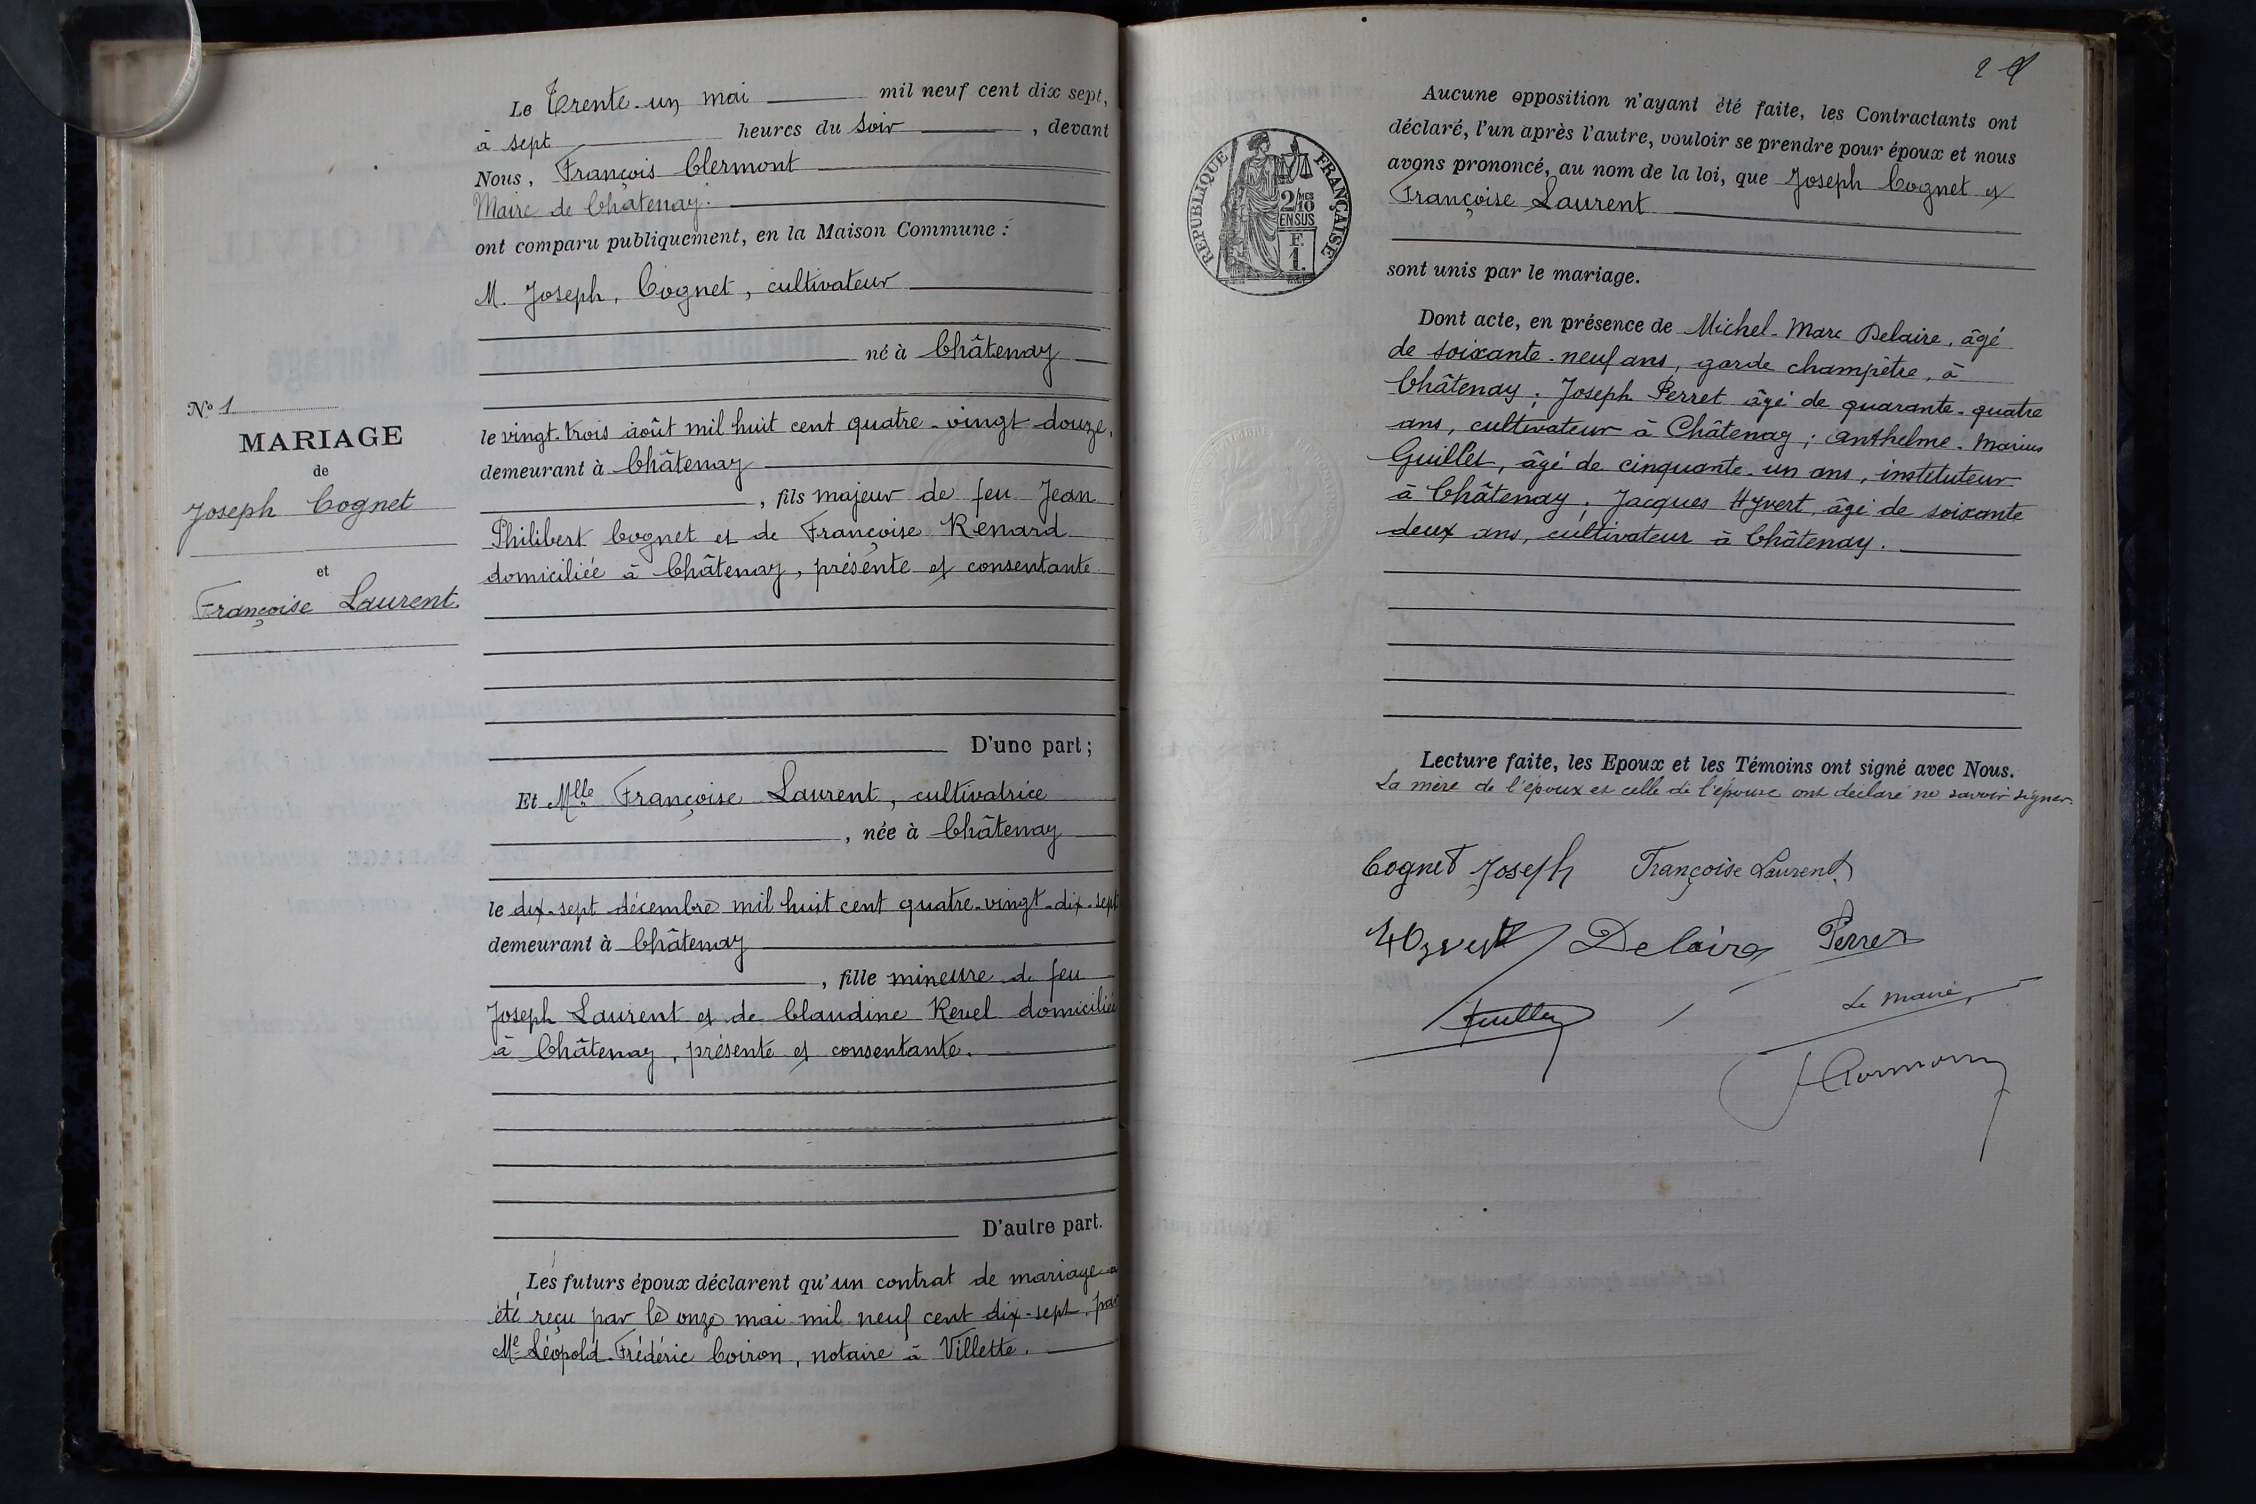 Le Trente-un mai mil neuf cent dix sept,
à sept heures du soir, devant
Nous, François Clermont
Maire de Châtenay.
ont comparu publiquement, en la Maison Commune :
M. Joseph, Cognet, cultivateur
né à Châtenay
le vingt-trois août mil huit cent quatre-vingt-douze,
demeurant à Châtenay
, fils majeur de feu Jean
Philibert Cognet et de Françoise Renard
domiciliée à Châtenay, présente et consentante
D'une part ;
Et Mlle Françoise Laurent, cultivatrice
, née à Châtenay
le dix-sept décembre mil huit cent quatre-vingt-dix-sept
demeurant à Châtenay
, fille mineure de feu
Joseph Laurent et de Claudine Revel domiciliée
à Châtenay, présente et consentante.
D'autre part.
Les futurs époux déclarent qu'un contrat de mariage a
été reçu par le onze mai mil neuf cent dix-sept, par
Me Léopold-Frédéric Coiron, notaire à Villette.
No 1
MARIAGE
de
Joseph Cognet
et
Françoise Laurent.
2
RÉPUBLIQUE FRANÇAISE
2/10 MES
EN SUS
F.
1.
Aucune opposition n'ayant été faite, les Contractants ont
déclaré, l'un après l'autre, vouloir se prendre pour époux et nous
avons prononcé, au nom de la loi, que Joseph Cognet et
Françoise Laurent
sont unis par le mariage.
Dont acte, en présence de Michel-Marc Delaire, âgé
de soixante-neuf ans, garde champêtre, à
Châtenay ; Joseph Perret âgé de quarante-quatre
ans, cultivateur à Châtenay ; Anthelme-Marius
Guillet, âgé de cinquante-un ans, instituteur
à Châtenay ; Jacques Hyvert, âgé de soixante
deux ans, cultivateur à Châtenay.
Lecture faite, les Epoux et les Témoins ont signé avec Nous.
La mère de l'époux et celle de l'épouse ont déclaré ne savoir signer.
Cognet Joseph Françoise Laurent
Hyvert Delaire Perret
Guillet
Le Maire,
F Clermont